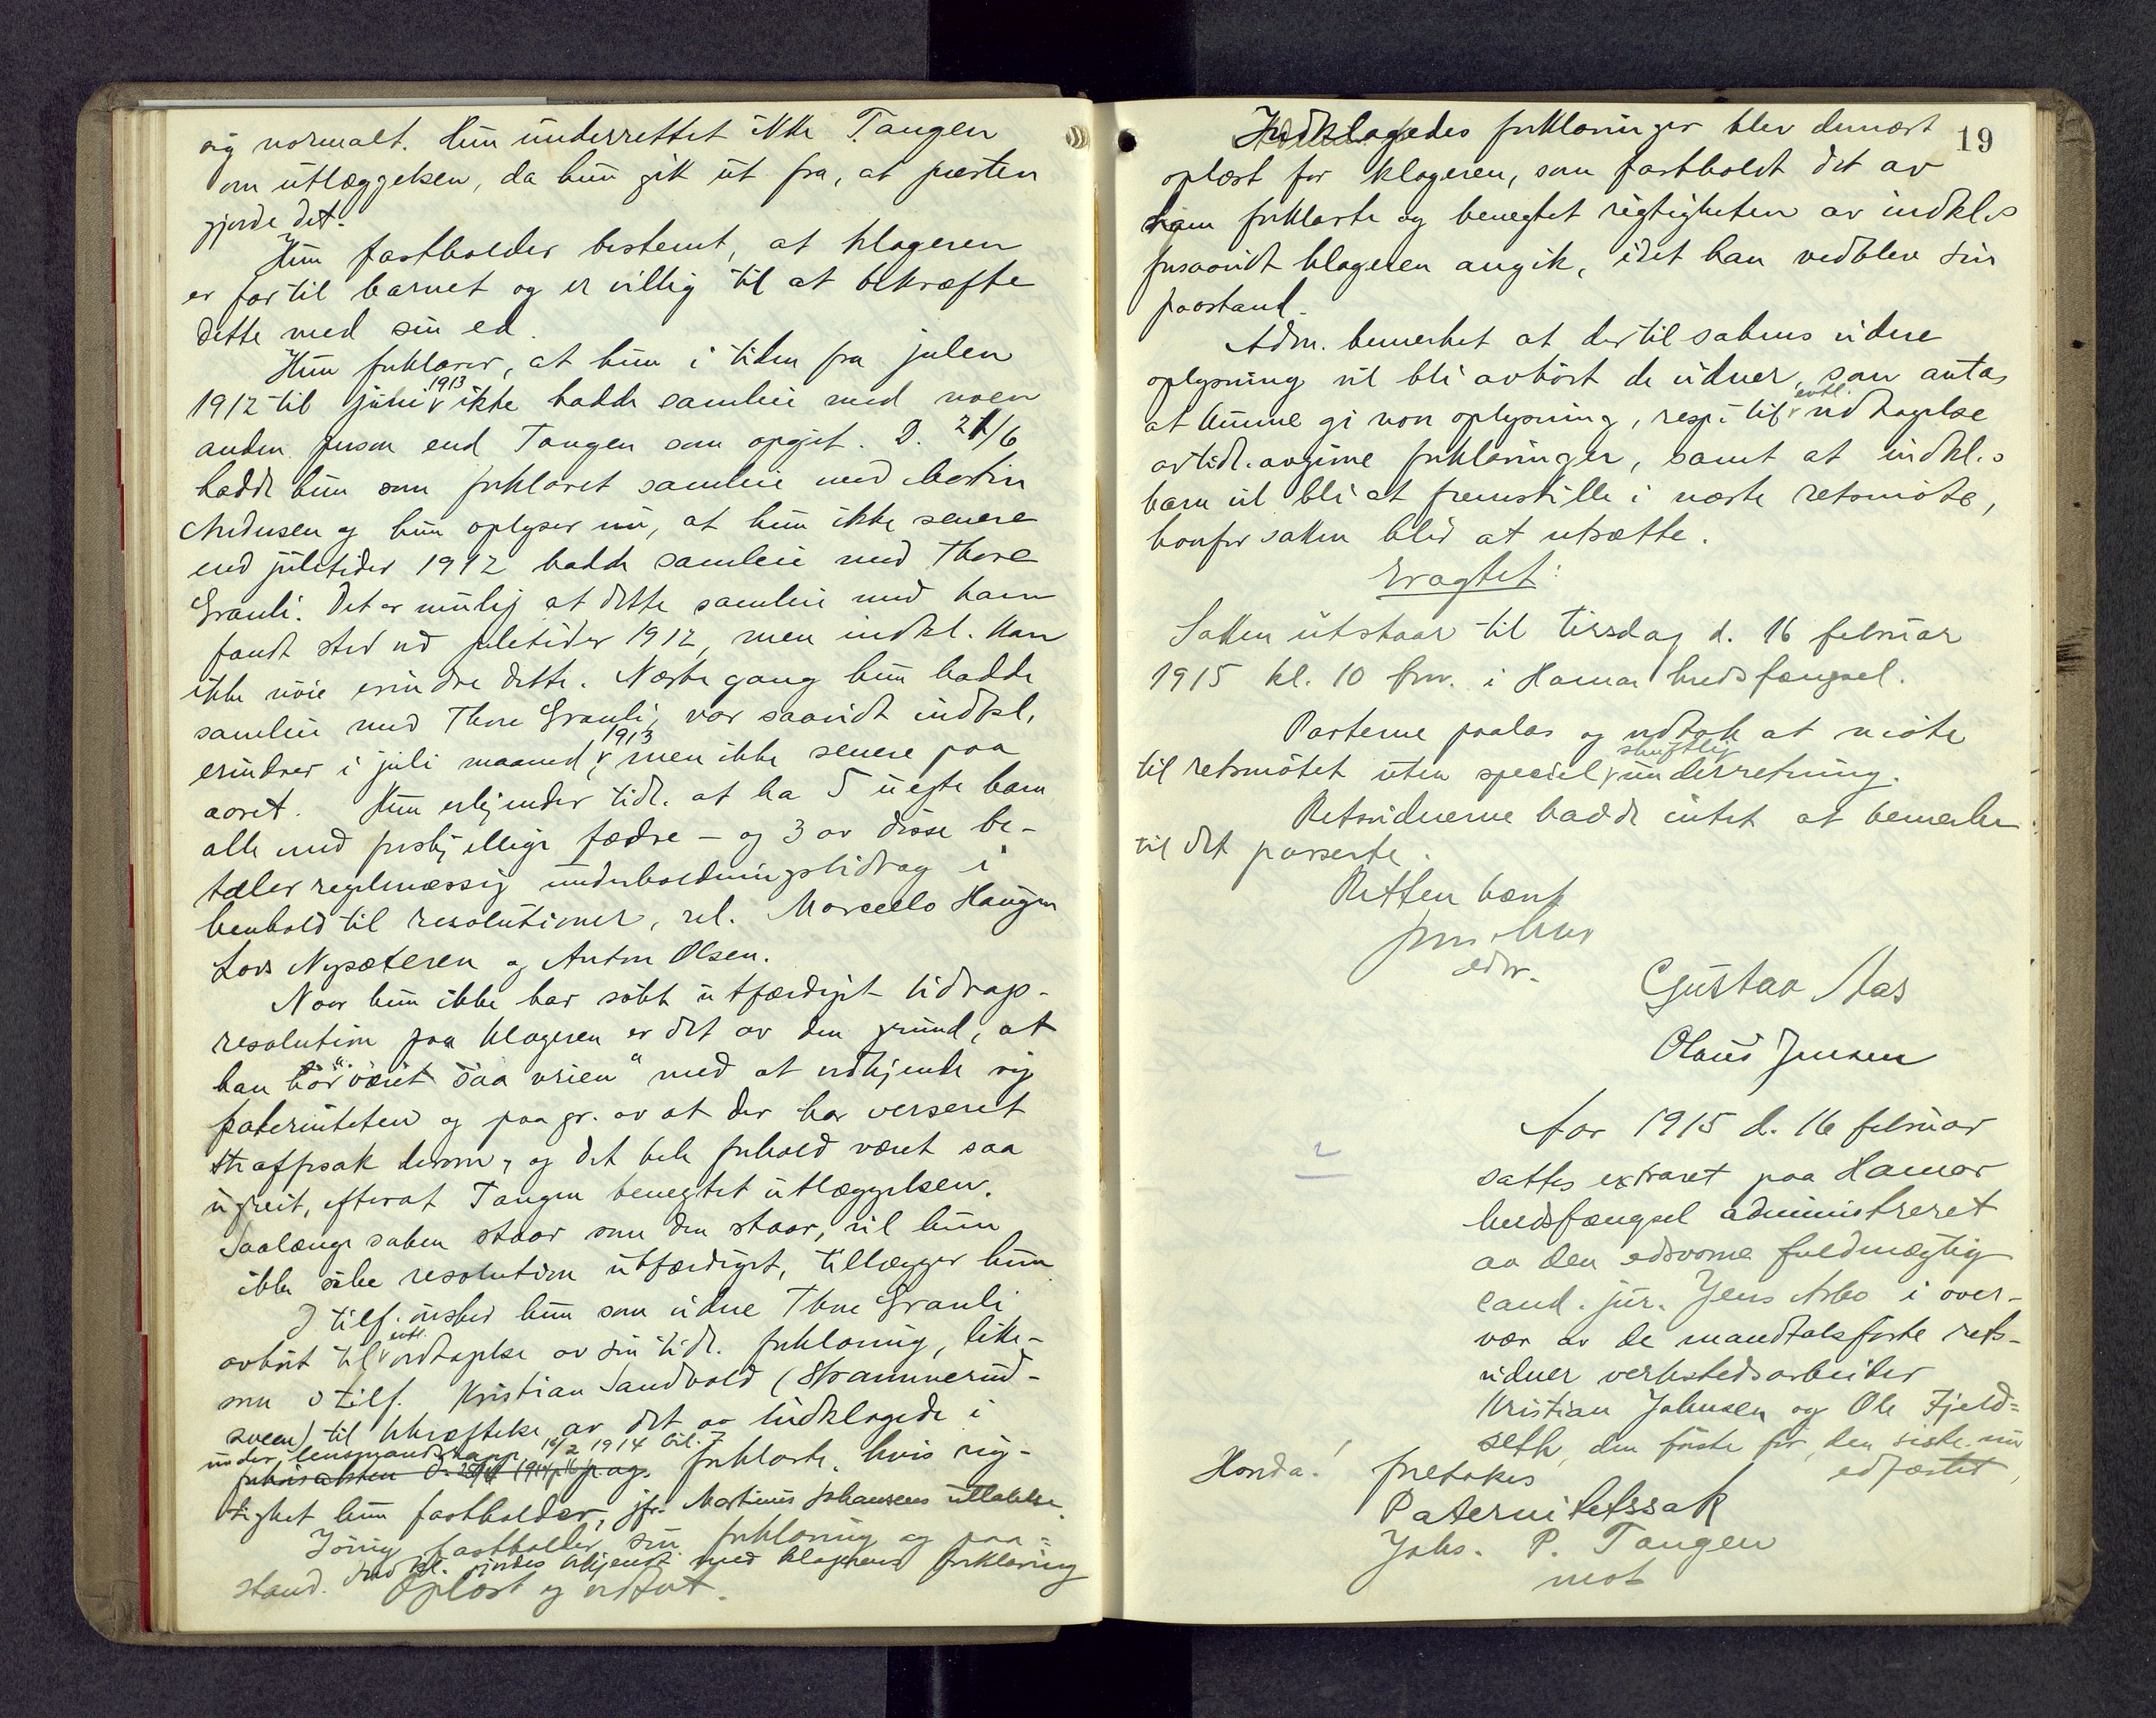 sig normalt. Hun underrettet ikke Tangen
om utlæggelsen, da hun gik ut fra, at presten
gjorde det.
Hun fastholder bestemt, at klageren
er far til barnet og er villig til at bekræfte
dette med sin ed.
Hun forklarer, at hun i tiden fra julen
1912 til juni 1913 ikke hadde samleie med noen
anden person end Tangen som opgit. D. 21/6
hadde hun som forklaret samleie med Martin
og hun oplyser nu, at hun ikke senere
end juletider 1912 hadde samleie med Thore
Granli. Det er mulig at dette samleie med ham
fandt sted ved juletider 1912, men indkl. kan
ikke nøie erindre dette. Næste gang hun hadde
samleie med Thore Granli, var saavidt indkl.
erindrer i juli maaned 1913, men ikke senere paa
aaret. Hun erkjender tidl. at ha 5 uegte barn
alle med forskjellige fædre – og 3 av disse be-
taler regelmæssig underholdningsbidrag i
henhold til resolutioner, nl. Marcello Haugen
Lars Nysæteren og Anton Olsen.
Naar hun ikke har søkt utfærdiget bidrags-
resolution paa klageren er det av den grund, at
han har "været saa vrien" med at vedkjende sig
paterniteten og paa gr. av at der har verseret
straffesak derom, og det hele forhold været saa
ugreit, efterat Tangen benegtet utlæggelsen.
Saalænge saken staar som den staar, vil hun
ikke søke resolution utfærdiget, tillægger hun
I tilf. ønsker hun som vidne Thore Granli
avhørt til evtl. vedtagelse av sin tidl. forklaring, like-
som i tilf. Kristian Sandvold (Strammerud-
sveen) til bekræftelse av det av indklagede i
under lensmandsrapp. 16/2 1914 bil. 7
forklarte, hvis rig-
tighet hun fastholder, jfr. Martinus Johansens uttalelse.
Iøvrig fastholder sin forklaring og paa-
stand. Indkl. gjordes bekjendt med klagerens forklaring
Oplæst og vedtat.
19
Indklagedes forklaringer blev dernæst
oplæst for klageren, som fastholdt det av
ham forklarte og benegtet rigtigheten av indkl.s
forsaavidt klageren angik, idet han vedblev sin
paastand.
Adm. bemerket at der til sakens videre
oplysning vil bli avhørt de vidner, som antas
at kunne gi noen oplysning, resp. til evtl. vedtagelse
av tidl. avgivne forklaringer, samt at indkl.s
barn vil bli at fremstille i næste retsmøte,
hvorfor saken blir at utsætte.
Eragtet:
Saken utstaar til tirsdag d. 16 februar
1915 kl. 10 fm. i Hamar kredsfængsel.
Parterne paalas og vedtok at møte
til retsmøtet uten speciel skriftlig underretning.
Retsvidnerne hadde intet at bemerke
til det passerte.
Retten hævt
Jens Arbo
edsv.
Gustav Aas
Olaus Jensen
Aar 1915 d. 16 februar
sattes extraret paa Hamar
kredsfængsel administreret
av den edsvorne fuldmægtig
cand. jur. Jens Arbo i over-
vær av de mandtalsførte rets-
vidner verkstedsarbeider
Kristian Johnsen og Ole Fjeld-
seth, den første før, den siste nu
edfæstet,
Hvorda!
foretokes
Paternitetssak
Johs. P. Tangen
mot